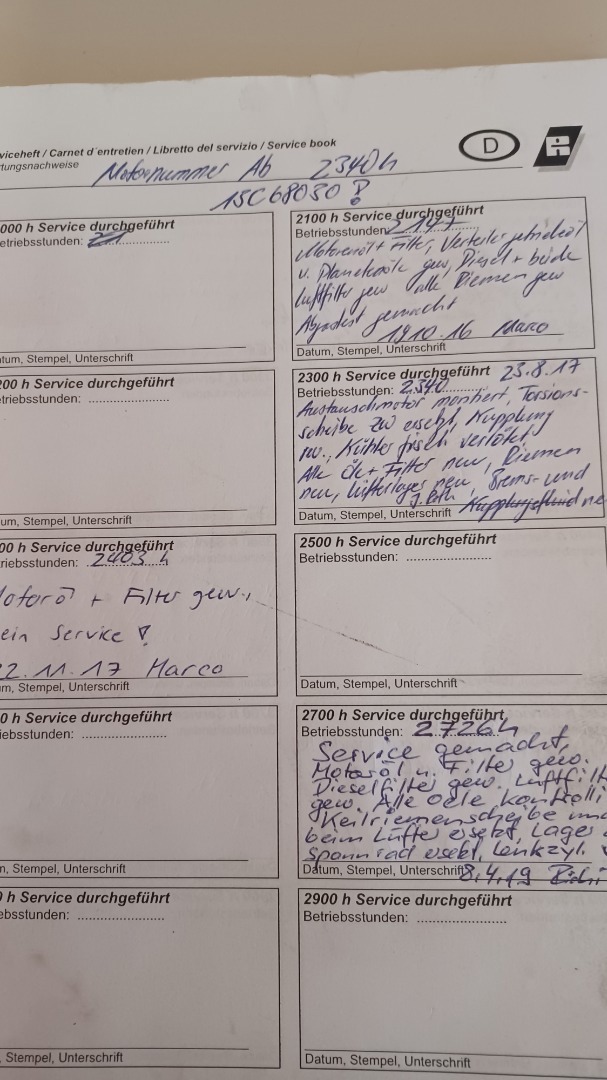 viceheft / Carnet d´entretien / Libretto del servizio / Service book
tungsnachweise
D
R
Motornummer Ab 2340h
15C68030 !
000 h Service durchgeführt
etriebsstunden: ....................
tum, Stempel, Unterschrift
2100 h Service durchgeführt
Betriebsstunden 2147
Motorenöl + Filter, Verteilergetriebeöl
u. Planetenöle gew, Diesel + beide
Luftfilter gew alle Riemen gew
gemacht
19.10.16 Marco
Datum, Stempel, Unterschrift
200 h Service durchgeführt
etriebsstunden: ....................
um, Stempel, Unterschrift
2300 h Service durchgeführt 23.8.17
Betriebsstunden: 2340
Austauschmotor montiert, Torsions-
scheibe ersetzt, Kupplung
rev., Kühler frisch verlötet
Alle Öle + Filter neu, Riemen
neu, Lüfterlager neu, Brems- und
Datum, Stempel, Unterschrift Kupplungsfluid ne
00 h Service durchgeführt
riebsstunden: 2403 h
otoröl + Filter gew.,
ein Service !
2.11.17 Marco
m, Stempel, Unterschrift
2500 h Service durchgeführt
Betriebsstunden: ........................
Datum, Stempel, Unterschrift
0 h Service durchgeführt
iebsstunden: ........................
n, Stempel, Unterschrift
2700 h Service durchgeführt
Betriebsstunden: 2726h
Service gemacht,
Motoröl u. Filter gew.
Dieselfilter gew. Luftfilt
gew. Alle Oele kontrolli
Keilriemenscheibe und
beim Lüfter ersetzt, Lager
Spannrad ersetzt, Lenkzyl.
Datum, Stempel, Unterschrift 8.4.19
0 h Service durchgeführt
ebsstunden: ........................
Stempel, Unterschrift
2900 h Service durchgeführt
Betriebsstunden: ........................
Datum, Stempel, Unterschrift